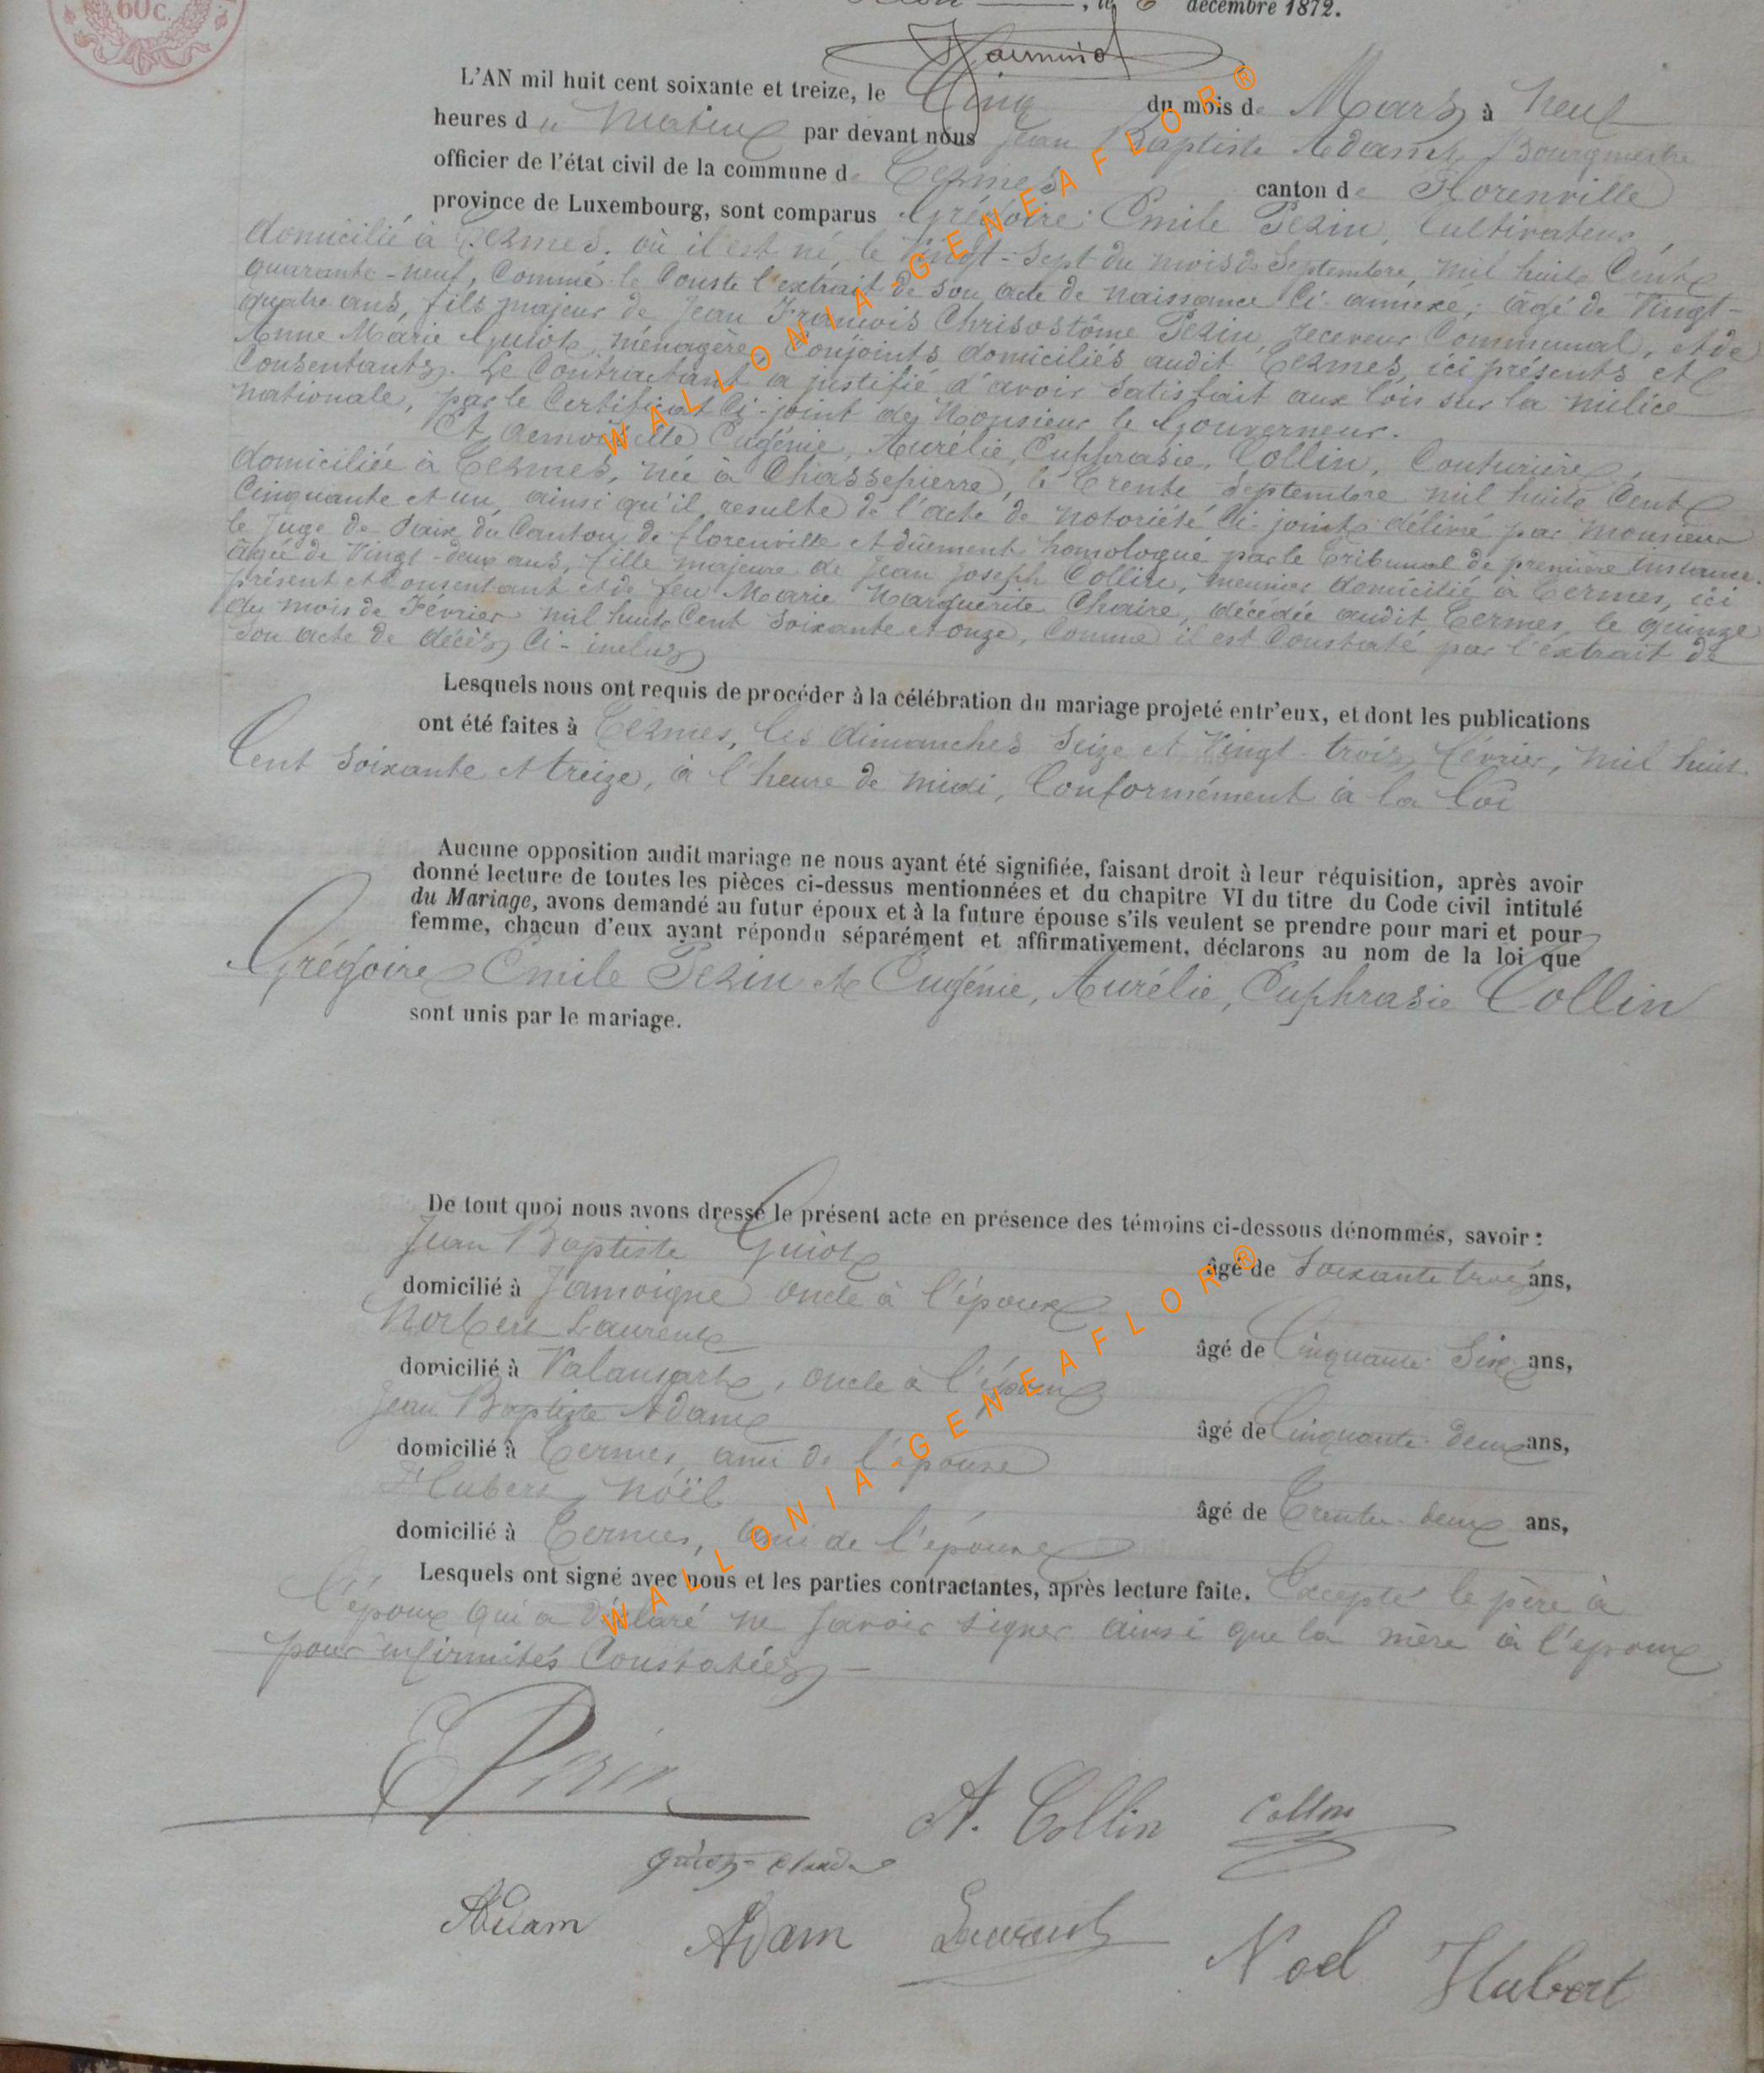 60c.
, le 6 décembre 1872.
L'AN mil huit cent soixante et treize, le Cinq du mois de Mars, à neuf
heures du Matin par devant nous Jean Baptiste Adam, Bourgmestre
officier de l'état civil de la commune de Termes canton de Florenville
province de Luxembourg, sont comparus Grégoire Emile Pezin, Cultivateur,
domicilié à Termes, où il est né, le vingt-sept du mois de Septembre, mil huit Cent
quarante-neuf, Comme le Conste l'extrait de son acte de naissance Ci-annexé, âgé de Vingt-
quatre ans, fils majeur de Jean François Chrisostôme Pezin, receveur Communal, et de
Anne Marie Guiot, ménagère, Conjoints domiciliés audit Termes, ici présents et
Consentants. Le Contractant a justifié d'avoir satisfait aux lois sur la milice
nationale, par le Certificat Ci-joint de Monsieur le Gouverneur.
Et demoiselle Eugénie, Aurélie, Euphrasie, Collin, Couturière,
domiciliée à Termes, née à Chassepierre, le trente Septembre mil huit Cent
Cinquante et un, ainsi qu'il résulte de l'acte de notoriété Ci-joint délivré par Monsieur
le Juge de Paix du Canton de Florenville et dûement homologué par le Tribunal de première instance.
âgée de Vingt-deux ans, fille majeure de Jean Joseph Collin, meunier domicilié à Termes, ici
présent et Consentant et de feu Marie Marguerite Chaire, décédée audit Termes, le quinze
du mois de Février mil huit Cent soixante et onze, Comme il est Constaté par l'extrait de
son acte de décès, Ci-inclus
Lesquels nous ont requis de procéder à la célébration du mariage projeté entr'eux, et dont les publications
ont été faites à Termes, les dimanches Seize et Vingt-trois février, mil huit
Cent soixante et treize, à l'heure de midi, Conformément à la loi
Aucune opposition audit mariage ne nous ayant été signifiée, faisant droit à leur réquisition, après avoir
donné lecture de toutes les pièces ci-dessus mentionnées et du chapitre VI du titre du Code civil intitulé
du Mariage, avons demandé au futur époux et à la future épouse s'ils veulent se prendre pour mari et pour
femme, chacun d'eux ayant répondu séparément et affirmativement, déclarons au nom de la loi que
Grégoire Emile Pezin et Eugénie, Aurélie, Euphrasie Collin
sont unis par le mariage.
De tout quoi nous avons dressé le présent acte en présence des témoins ci-dessous dénommés, savoir :
Jean Baptiste Guiot âgé de Soixante trois ans,
domicilié à Jamoigne oncle à l'époux
Norbert Laurent âgé de Cinquante Six ans,
domicilié à Valansart, oncle à l'époux
Jean Baptiste Adam âgé de Cinquante deux ans,
domicilié à Termes, ami de l'épouse
Hubert Noël âgé de Trente deux ans,
domicilié à Termes, ami de l'épouse
Lesquels ont signé avec nous et les parties contractantes, après lecture faite. Excepté le père à
l'époux qui a déclaré ne savoir signer ainsi que la mère à l'époux
pour infirmités Constatées
E Pezin
A. Collin Collin
Adam Adam Laurent Noel Hubert
WALLONIA-GENEAFLOR®
WALLONIA-GENEAFLOR®